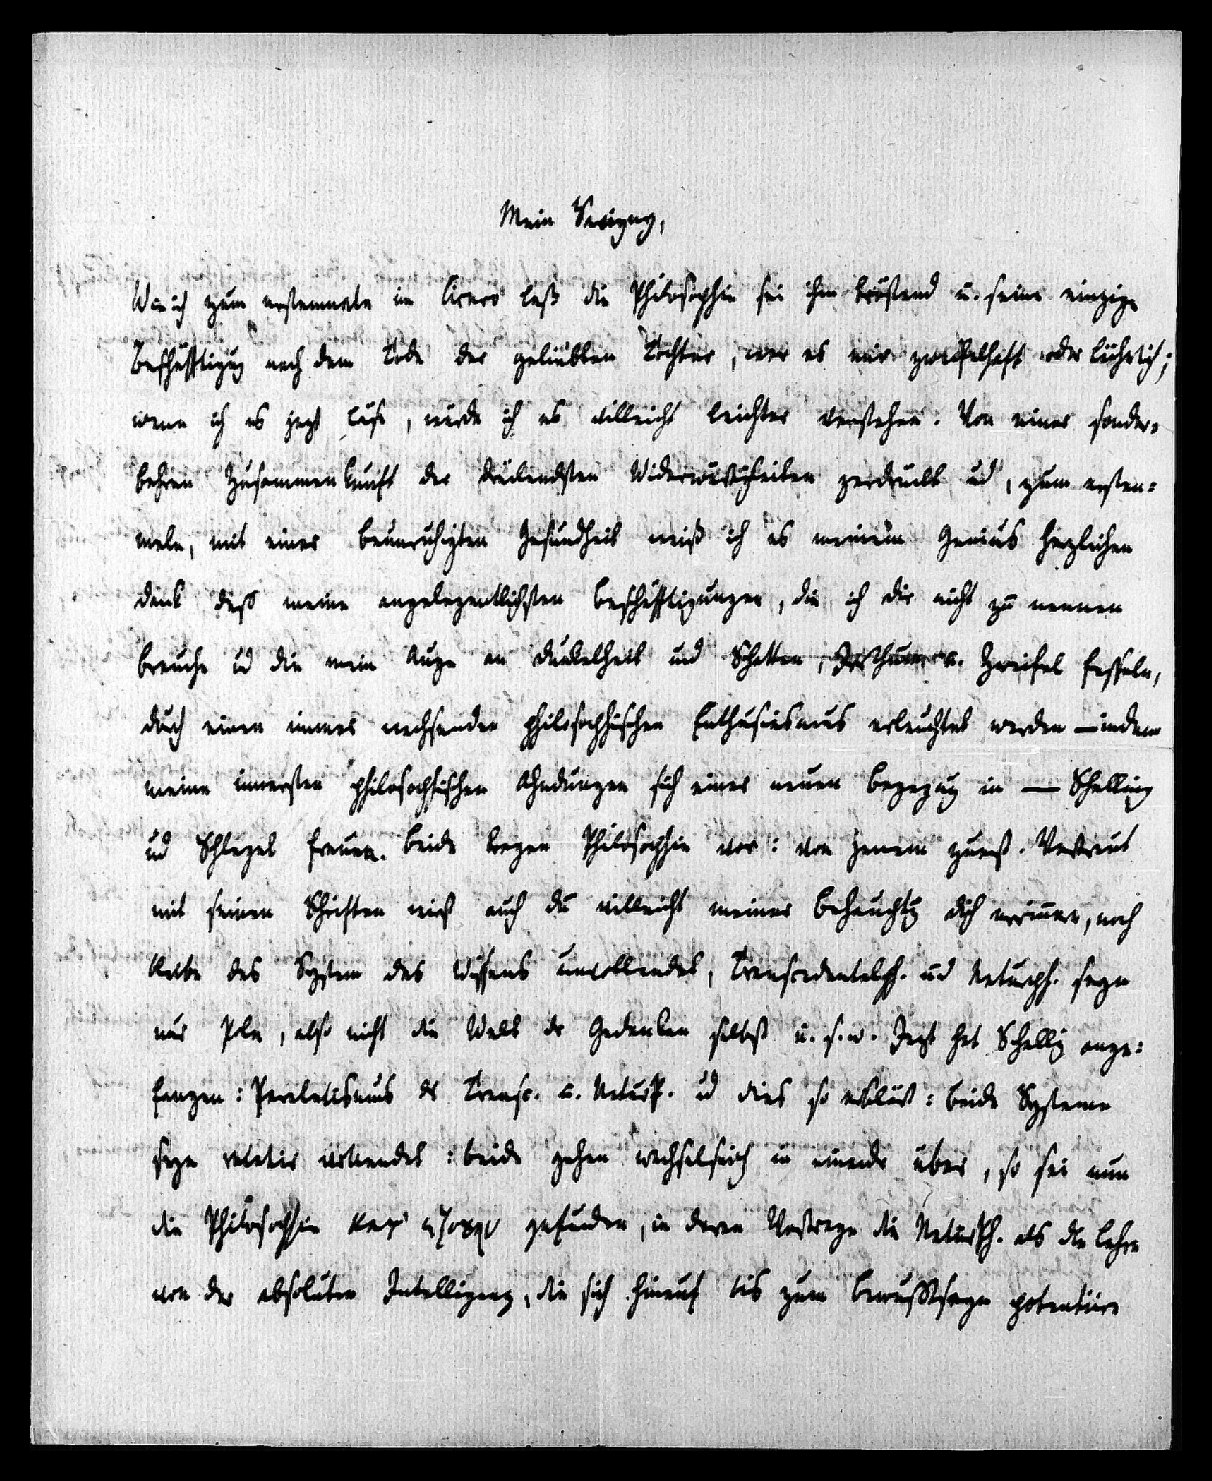 Mein Savigny,
Wie ich zum erstenmale im Cicero laß die Philosophie sei ihm tröstend u. seine einzige
Beschäfftigug nach dem Tode der geliebten Tochter, war es mir zweifelhaft oder lächerlich;
wenn ich es jezt läse, würde ich es villeicht leichter verstehen. Von einer sonder-
bahren Zusammenkunft der drükendsten Widerwärtigkeiten zerdrückt ud, zum ersten-
male, mit einer beunruhigten Gesundheit weiß ich es meinem Genius herzlichen
dank daß meine angelegentlichsten Beschäfftigungen, die ich dir nicht zu nennen
brauche ud die mein Auge an dunkelheit und Schatten, Irrthum u. Zweifel fesseln,
durch einen immer wachsenden philosophischen Enthusiasmus erleuchtet werden — indem
meine innersten philosophischen Ahndungen sich eines neuen in — Schelling
ud Schlegel freuen. Beide tragen Philosophie vor: von jenem zuerst. Vertraut
mit seinen Schriften wirst auch du villeicht meiner Behauptg dich erinnern, noch
bliebe das System des Wissens unvollendet, Transcedentalph. ud Naturph. seyn
nur Pole, also nicht die Welt der Gedanken selbst u. s. w. Jezt hat Schellig ange-
fangen: Parelelismus der Transc. u. Naturp. ud dies so erklärt: beide Systeme
seyn relativ vollendet: beide gehen wechselseitig in einander über, so sei nun
die Philosophie κατ' εξοχην gefunden, in deren Vortrage die Naturph. als die Lehre
von der absoluten Intelligenz, die sich hinauf bis zum Bewußtseyn potentiire